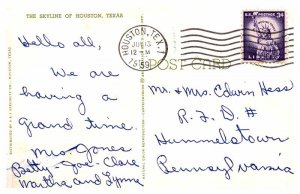 THE SKYLINE OF HOUSTON, TEXAS
Hello all,
We are
having a
grand time.
Mrs Jones
Betty - Joe - Clare
Martha and Lynne
HOUSTON, TEX.
JUN 13
12 M
1959
POST CARD
3¢
LIBERTY
Mr. & Mrs. Edwin Hess
R. F. D. #
Hummelstown
Pennsylvania